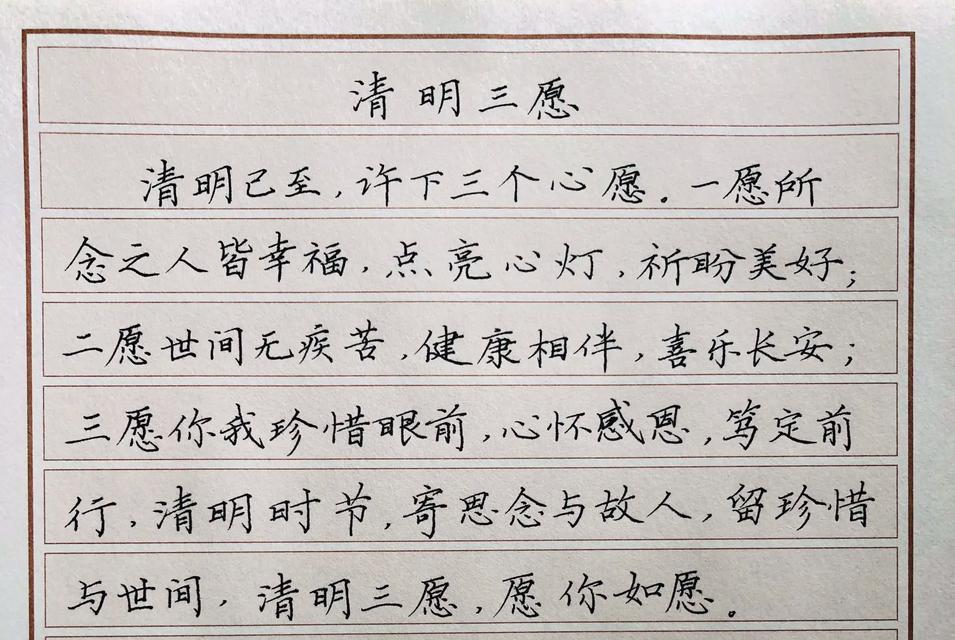 清明三愿
清明已至,许下三个心愿。一愿所
念之人皆幸福,点亮心灯,祈盼美好;
二愿世间无疾苦,健康相伴,喜乐长安;
三愿你我珍惜眼前,心怀感恩,笃定前
行,清明时节,寄思念与故人,留珍惜
与世间,清明三愿,愿你如愿。